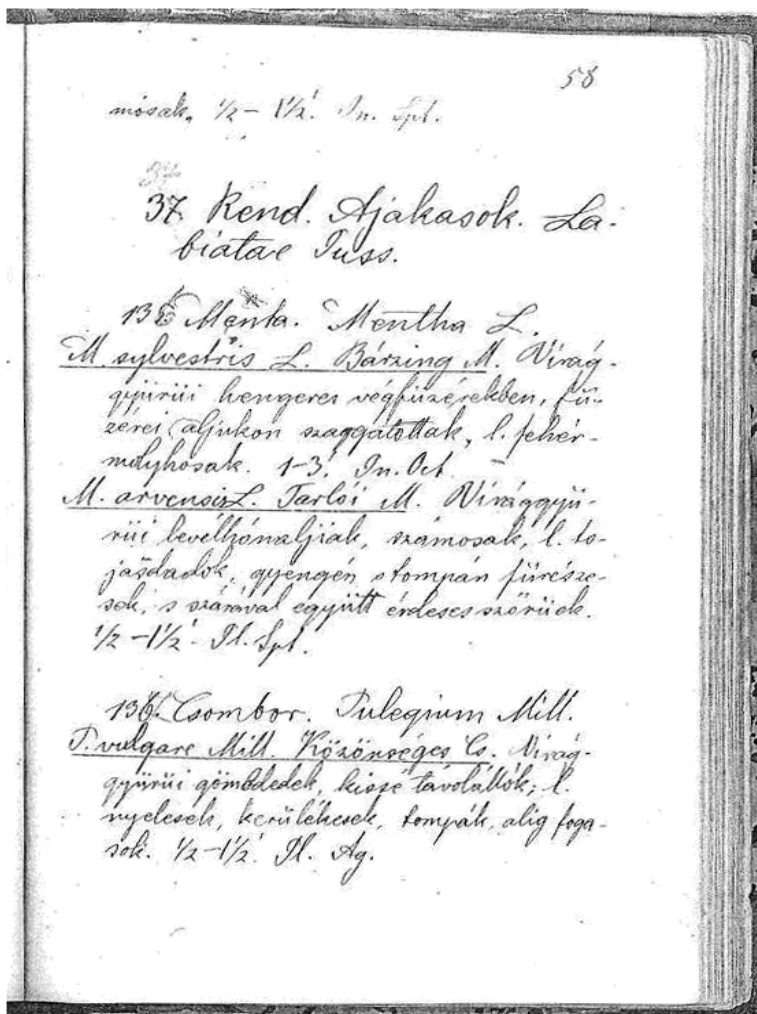 58
mósak. ½–1½'. Jn. Spt.
37. Rend. Ajakasok. La-
biatae Juss.
135. Menta. Mentha L.
M. sylvestris L. Bárzing M. Virág-
gyürüi hengeres végfüzérekben, fü-
zérei aljukon szaggatottak, l. fehér-
molyhosak. 1–3'. Jn. Oct.
M. arvensis L. Tarlói M. Virággyü-
rüi levélhónaljiak, számosak, l. to-
jásdadok, gyengén s tompán fürésze-
sek, s szárával együtt érdeses szőrüek.
½–1½'. Jl. Spt.
136. Csombor. Pulegium Mill.
P. vulgare Mill. Közönséges Cs. Virág-
gyürüi gömbdedek, kissé távolállók; l.
nyelesek, kerülékesek, tompák, alig foga-
sok. ½–1½'. Jl. Ag.